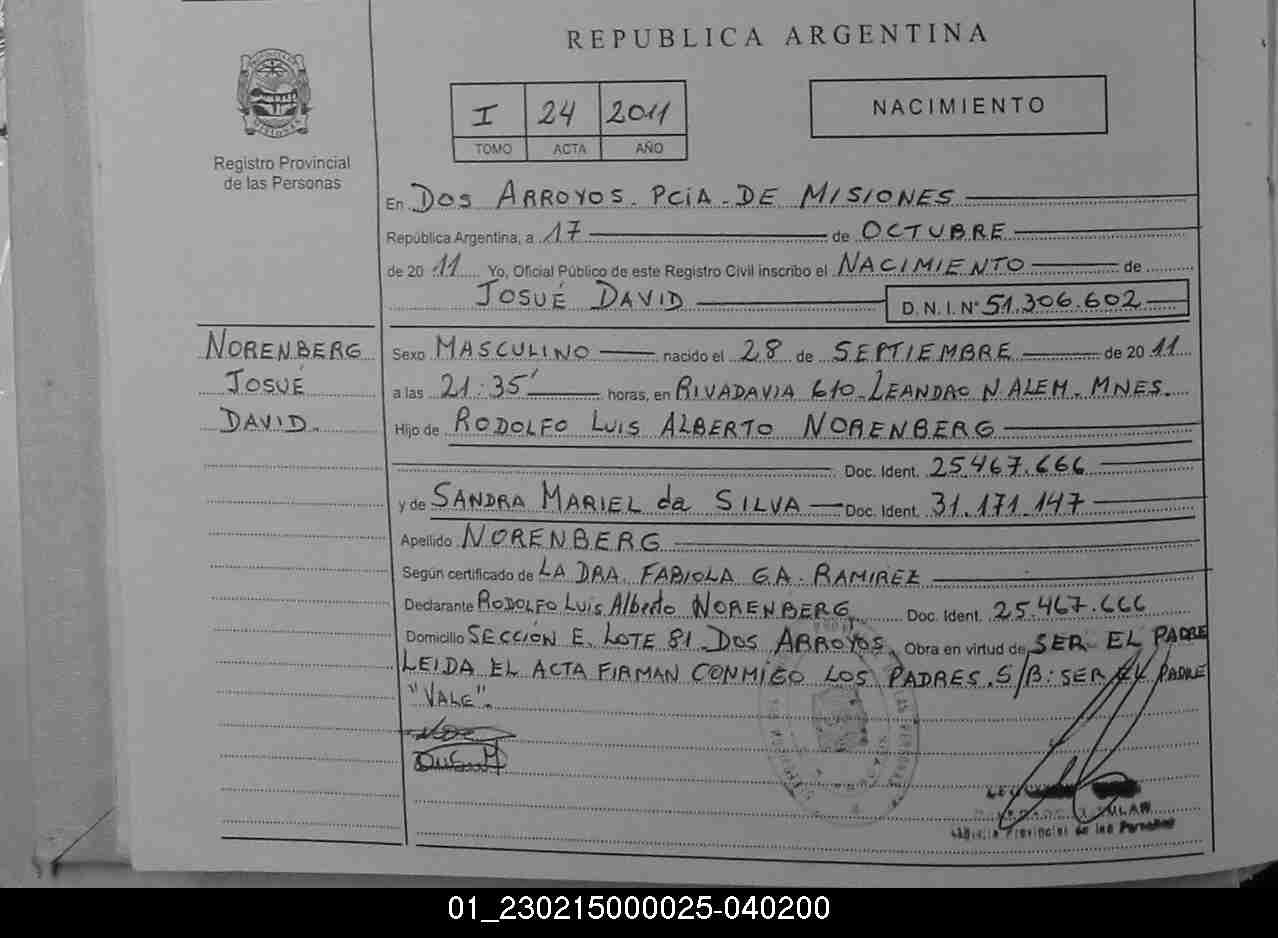 REPUBLICA ARGENTINA
I 24 2011
TOMO ACTA AÑO
NACIMIENTO
Registro Provincial
de las Personas
En DOS ARROYOS. PCIA. DE MISIONES
República Argentina, a 17 de OCTUBRE
de 20 11 Yo, Oficial Público de este Registro Civil inscribo el NACIMIENTO de
JOSUÉ DAVID D.N.I.N° 51.306.602
NORENBERG
JOSUÉ
DAVID.
Sexo MASCULINO nacido el 28 de SEPTIEMBRE de 20 11
a las 21:35' horas, en RIVADAVIA 610. LEANDRO N. ALEM. MNES.
Hijo de RODOLFO LUIS ALBERTO NORENBERG
Doc. Ident. 25.467.666
y de SANDRA MARIEL da SILVA Doc. Ident. 31.171.147
Apellido NORENBERG
Según certificado de LA DRA. FABIOLA G.A. RAMIREZ
Declarante RODOLFO LUIS Alberto NORENBERG, Doc. Ident. 25.467.666
Domicilio SECCIÓN E. LOTE 81. DOS ARROYOS. Obra en virtud de SER EL PADRE
LEIDA EL ACTA FIRMAN CONMIGO LOS PADRES. S/B: SER EL PADRE
"VALE".
Provincial de las Personas
01_230215000025-040200